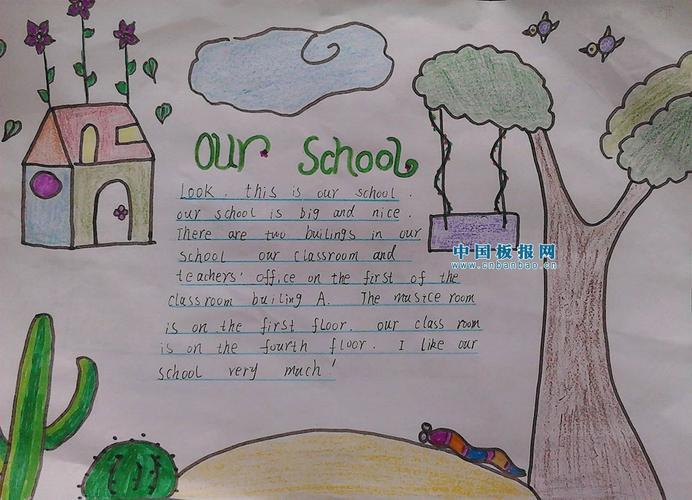 our school
Look, this is our school.
our school is big and nice.
There are two builings in our
school our classroom and
teachers' office on the first of the
classroom builing A. The musice room
is on the first floor. our class room
is on the fourth floor. I like our
school very much!
中国板报网
www.cnbanbao.cn